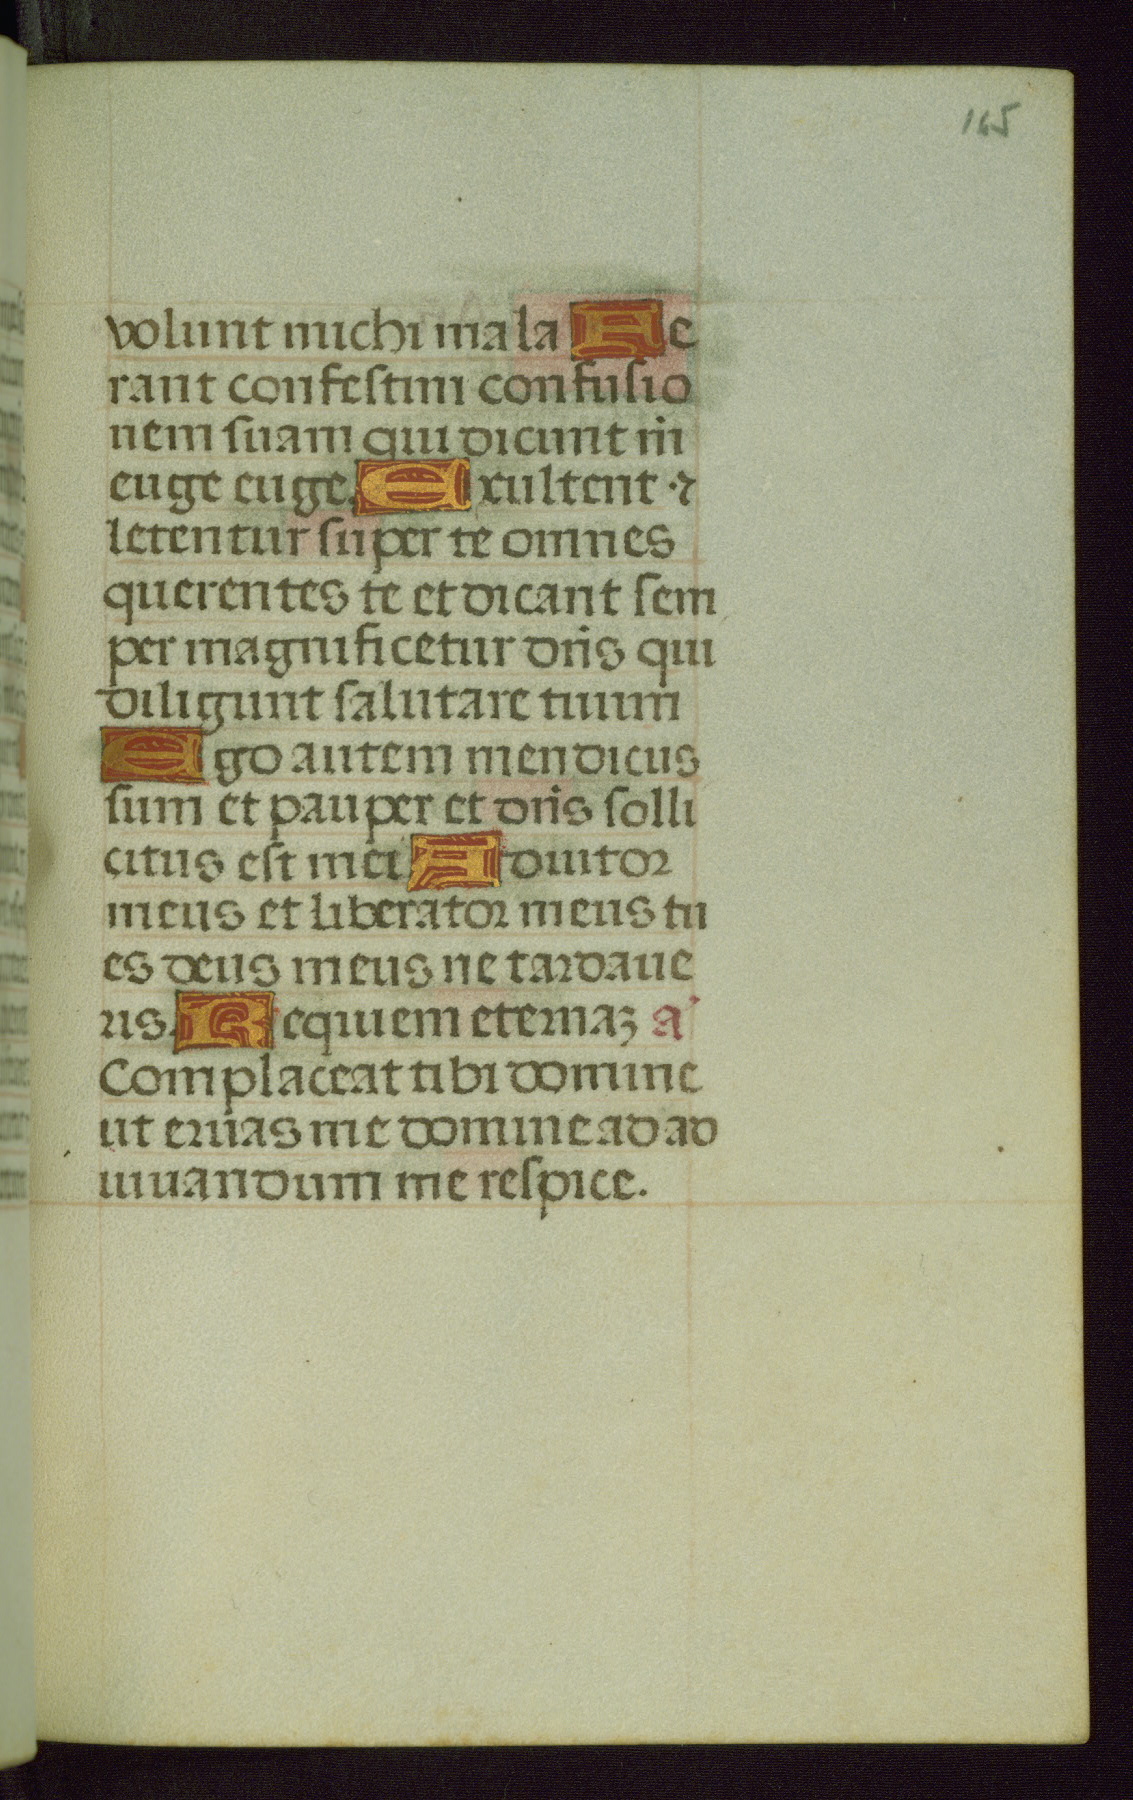 165
volunt michi mala Fe
rant confestim confusio
nem suam qui dicunt m̄
euge euge. Exultent ⁊
letentur super te omnes
querentes te et dicant sem
per magnificetur dn̄s qui
diligunt salutare tuum
Ego autem mendicus
sum et pauper et dn̄s solli
citus est mei Adiutor
meus et liberator meus tu
es deus meus ne tardaue
ris. Requiem eternaꝫ a'
Complaceat tibi domine
ut eruas me domine ad ad
iuuandum me respice.